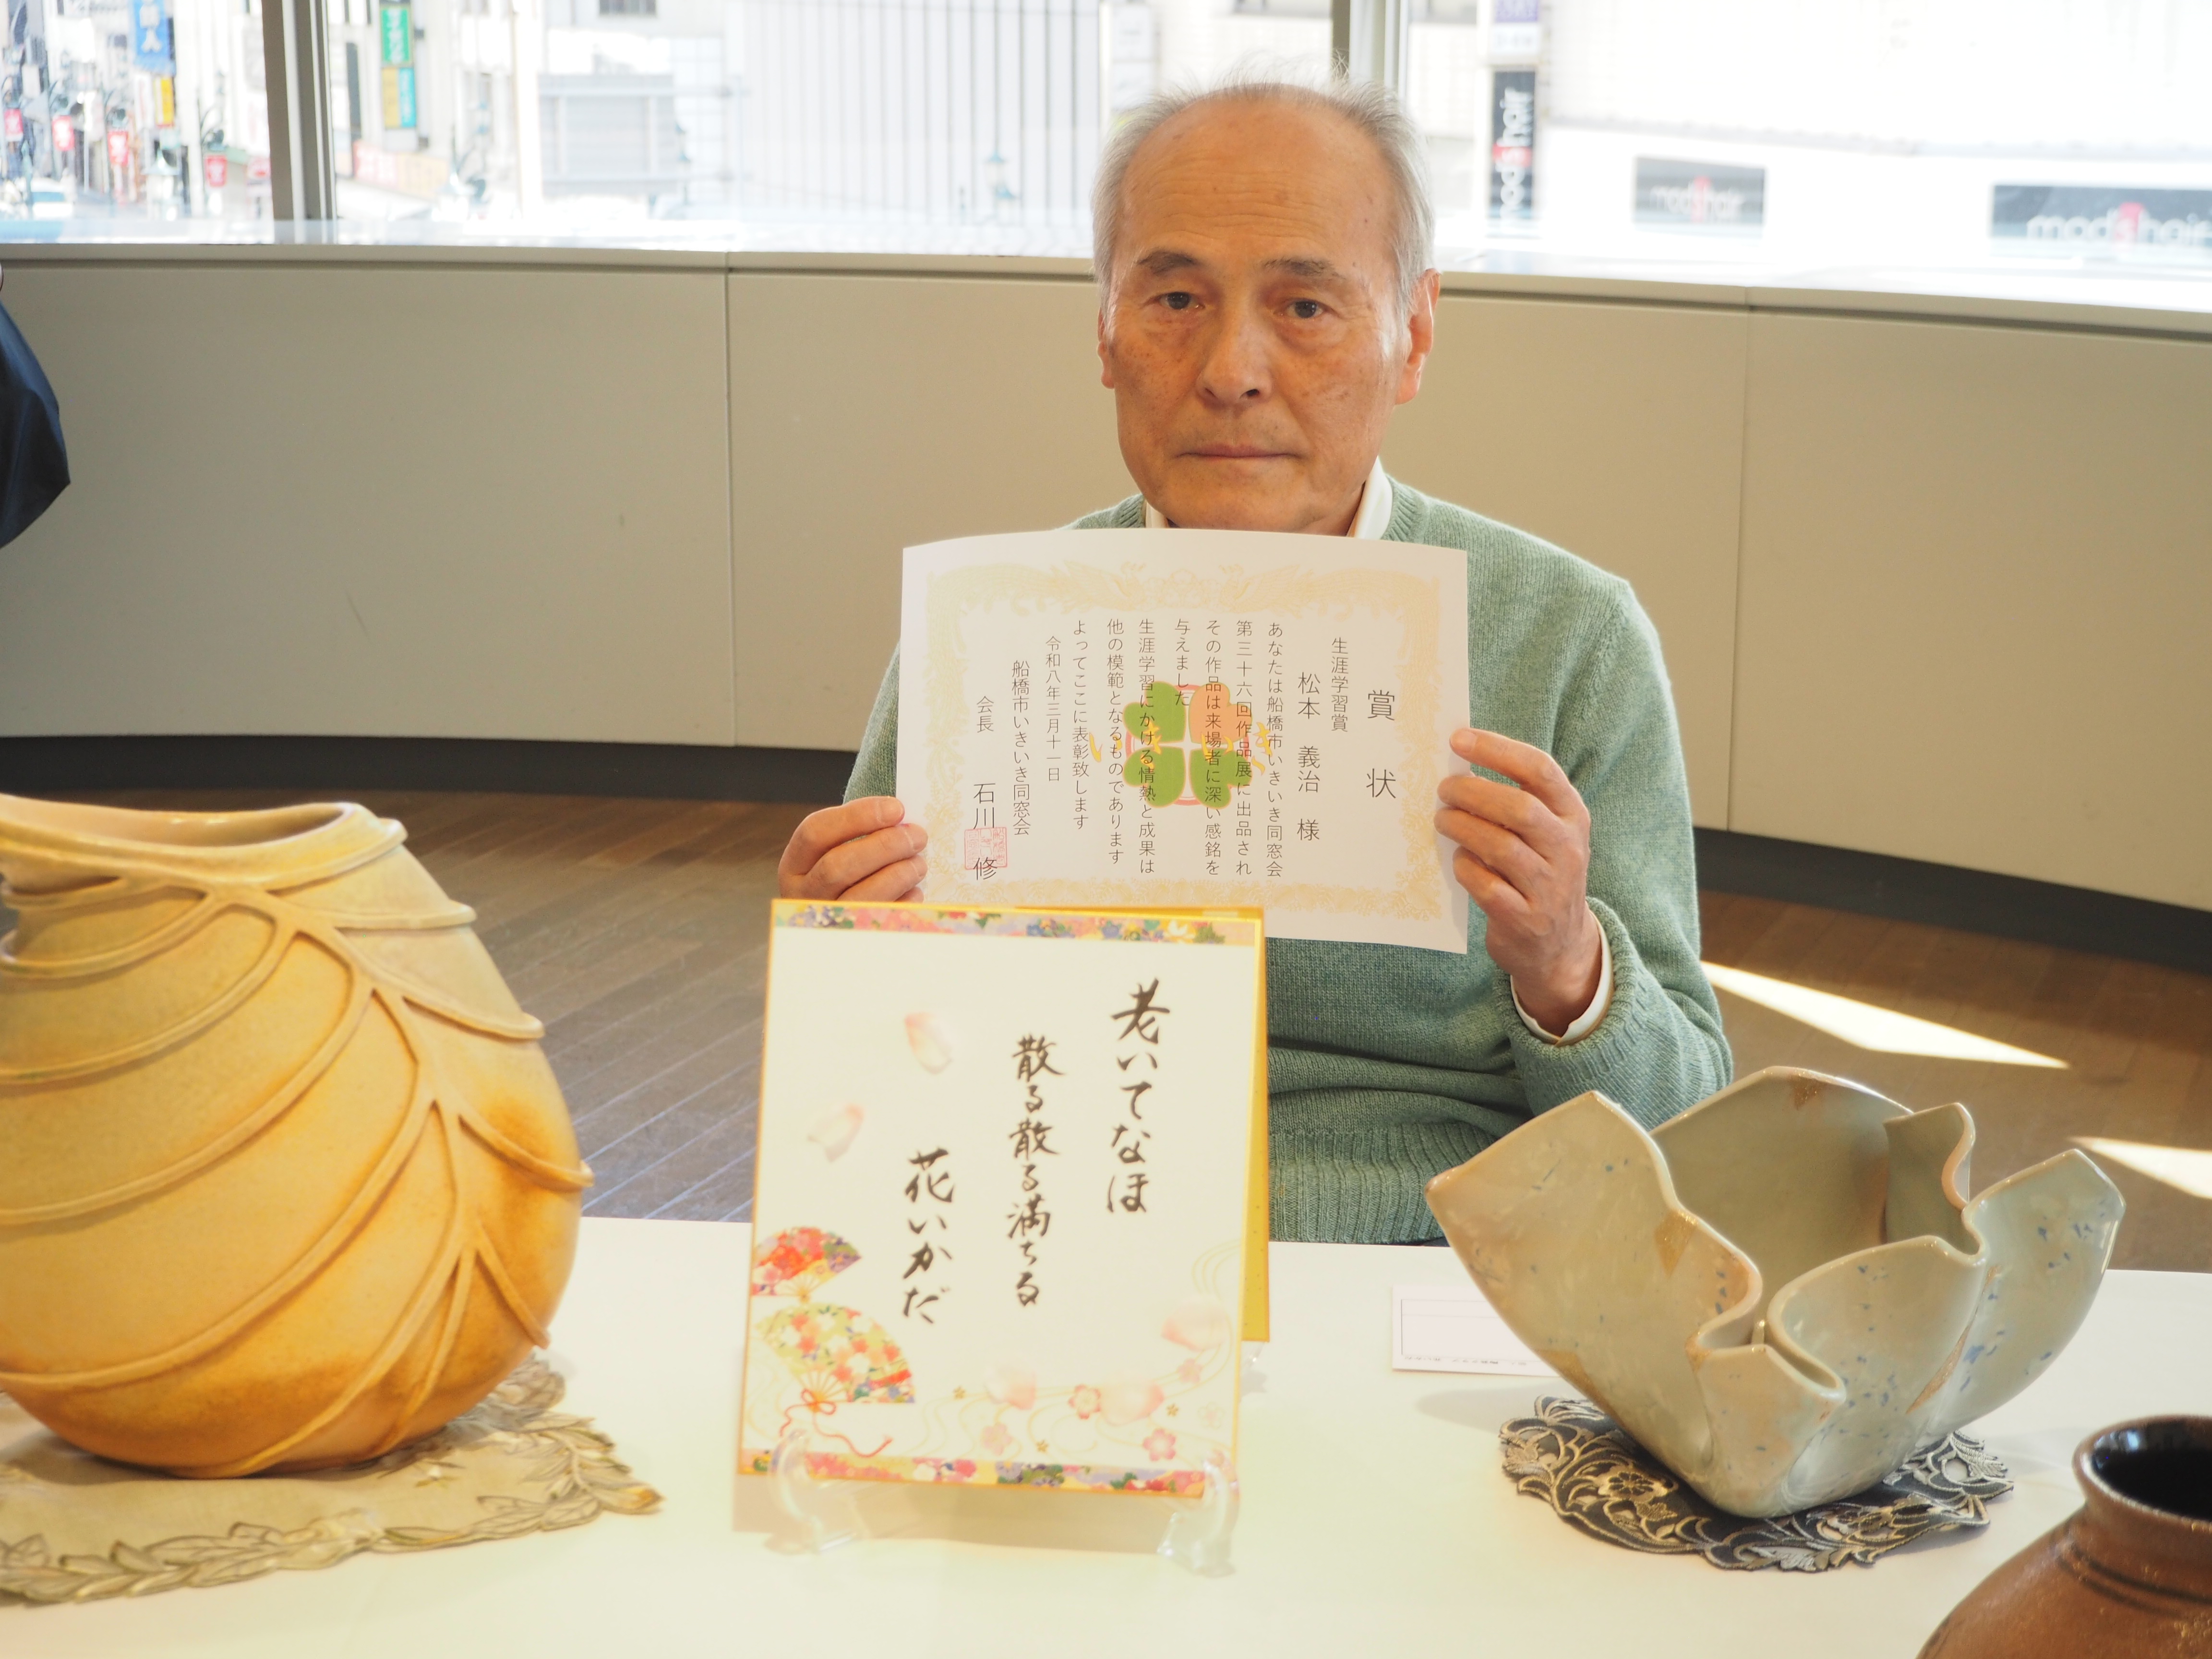 賞状
生涯学習賞
松本 義治 様
あなたは船橋市いきいき同窓会
第三十六回作品展に出品され
その作品は来場者に深い感銘を
与えました
生涯学習にかける情熱と成果は
他の模範となるものであります
よってここに表彰致します
令和八年三月十一日
船橋市いきいき同窓会
会長 石川 修
いきいき
老いてなほ
散る散る満ちる
花いかだ
mod's hair
mod's hair
mod's hair